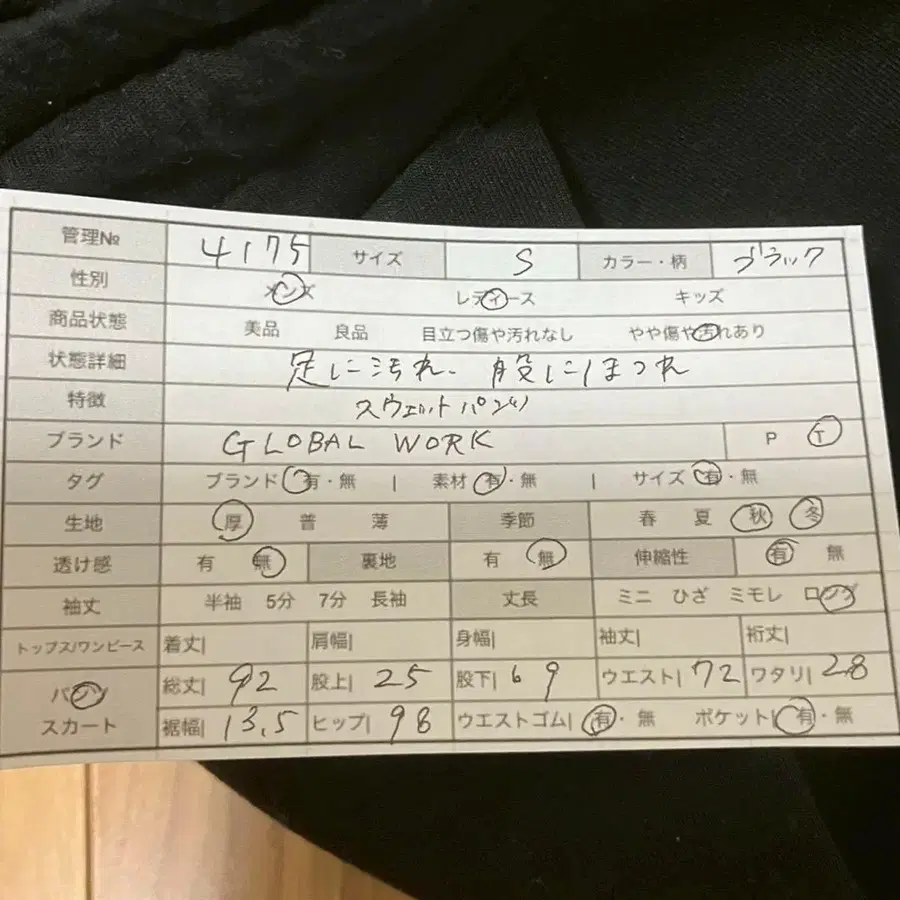 管理№ 4175 サイズ S カラー・柄 ブラック
性別 メンズ レディース キッズ
商品状態 美品 良品 目立つ傷や汚れなし やや傷や汚れあり
状態詳細 足に汚れ、股にほつれ
特徴 スウェットパンツ
ブランド GLOBAL WORK P T
タグ ブランド 有・無 | 素材 有・無 | サイズ 有・無
生地 厚 普 薄 季節 春 夏 秋 冬
透け感 有 無 裏地 有 無 伸縮性 有 無
袖丈 半袖 5分 7分 長袖 丈長 ミニ ひざ ミモレ ロング
トップス/ワンピース 着丈| 肩幅| 身幅| 袖丈| 裄丈|
パンツ 総丈| 92 股上| 25 股下| 69 ウエスト| 72 ワタリ| 28
スカート 裾幅| 13.5 ヒップ| 98 ウエストゴム| 有・無 ポケット| 有・無